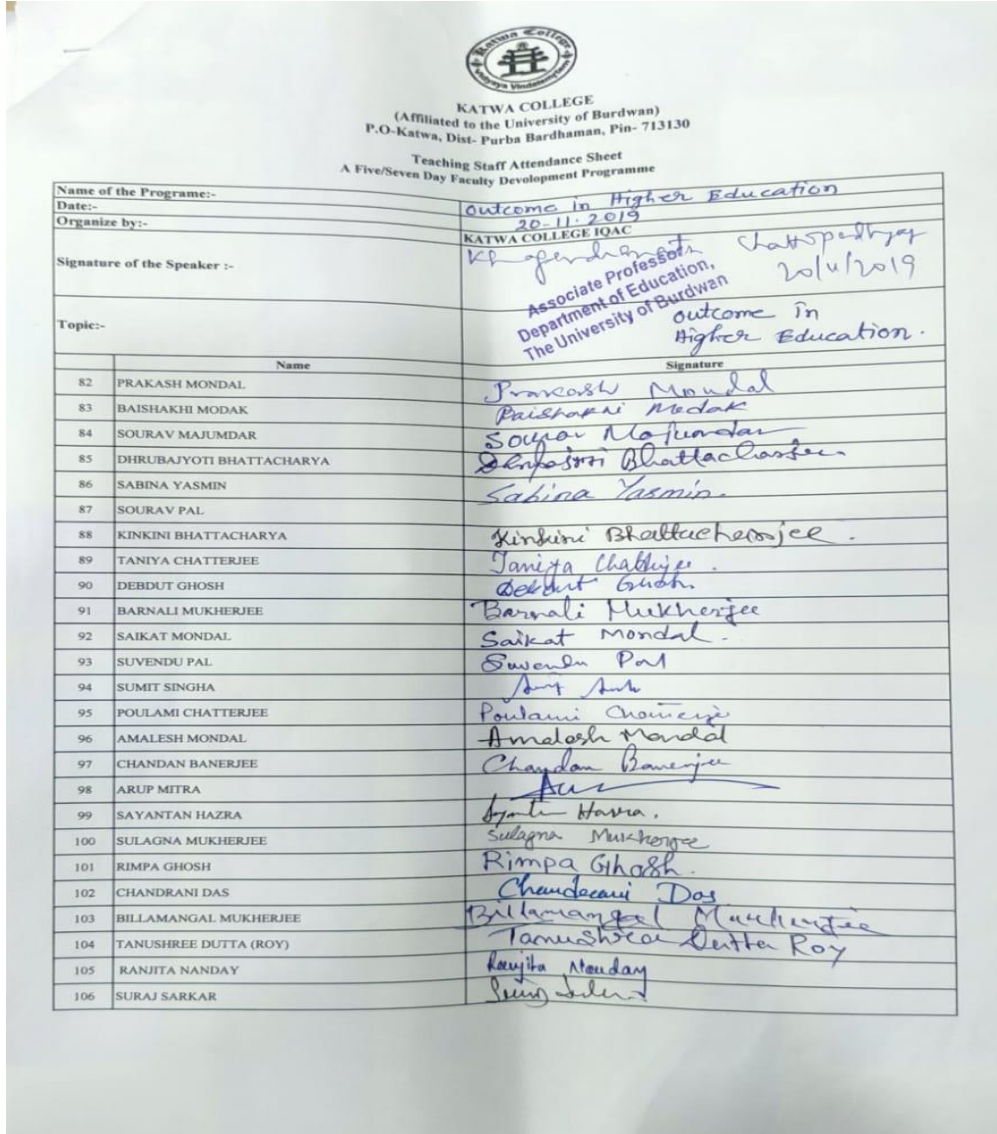 Katwa College
Vidyaya Vindatemritam
KATWA COLLEGE
(Affiliated to the University of Burdwan)
P.O-Katwa, Dist- Purba Bardhaman, Pin- 713130
Teaching Staff Attendance Sheet
A Five/Seven Day Faculty Devolopment Programme
Name of the Programe:- outcome in Higher Education
Date:- 20-11-2019
Organize by:- KATWA COLLEGE IQAC
Signature of the Speaker :- Khagendranath Chattopadhyay
20/11/2019
Associate Professor
Department of Education,
The University of Burdwan
Topic:- outcome in
Higher Education.
Name Signature
82 PRAKASH MONDAL Prakash Mondal
83 BAISHAKHI MODAK Baishakhi Modak
84 SOURAV MAJUMDAR Sourav Majumdar
85 DHRUBAJYOTI BHATTACHARYA Bhattacharjee
86 SABINA YASMIN Sabina Yasmin.
87 SOURAV PAL
88 KINKINI BHATTACHARYA Kinkini Bhattacherjee.
89 TANIYA CHATTERJEE Taniya Chatterjee.
90 DEBDUT GHOSH Debdut Ghosh.
91 BARNALI MUKHERJEE Barnali Mukherjee
92 SAIKAT MONDAL Saikat Mondal.
93 SUVENDU PAL Suvendu Pal
94 SUMIT SINGHA
95 POULAMI CHATTERJEE Poulami Chatterjee
96 AMALESH MONDAL Amalesh Mondal
97 CHANDAN BANERJEE Chandan Banerjee
98 ARUP MITRA
99 SAYANTAN HAZRA Hazra.
100 SULAGNA MUKHERJEE Sulagna Mukherjee
101 RIMPA GHOSH Rimpa Ghosh.
102 CHANDRANI DAS Chandrani Das
103 BILLAMANGAL MUKHERJEE Billamangal Mukherjee
104 TANUSHREE DUTTA (ROY) Tanushree Dutta Roy
105 RANJITA NANDAY Ranjita Nanday
106 SURAJ SARKAR